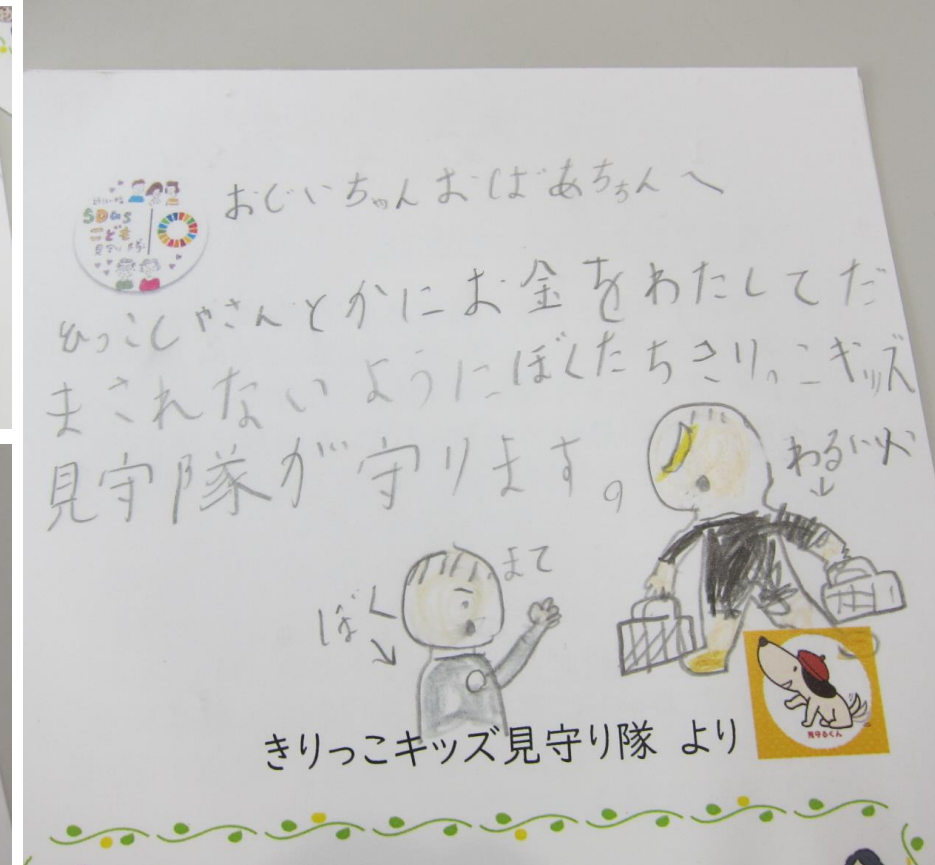 SDGs
こども
見守り隊
おじいちゃんおばあちゃんへ
ひっこしやさんとかにお金をわたしてだ
まされないようにぼくたちきりっこキッズ
見守隊が守ります。
わるい人
まて
ぼく
見守るくん
きりっこキッズ見守り隊 より